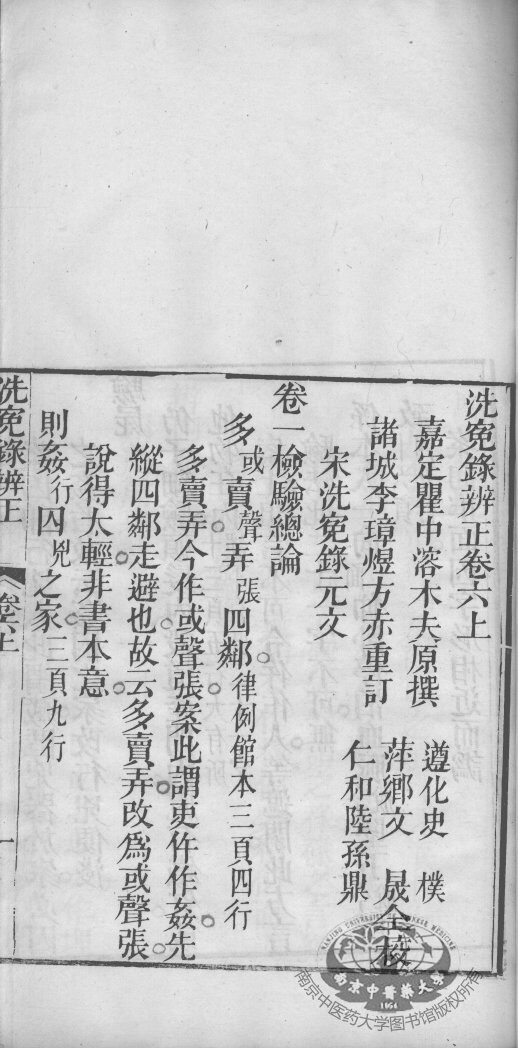 洗冤錄辨正卷六上
嘉定瞿中溶木夫原撰　遵化史　樸
諸城李璋煜方赤重訂　萍鄉文　晟仝校
仁和陸孫鼎
宋洗冤錄元文
卷一檢驗總論
多或賣聲弄張四鄰。律例館本三頁四行
多賣弄今作或聲張案此謂吏仵作姦先
縱四鄰走避也故云多賣弄改為或聲張
說得太輕非書本意
則姦行囚兇之家三頁九行
洗冤錄辨正　卷六上　一
NANJING UNIVERSITY CHINESE MEDICINE
南京中醫藥大學
1954
南京中医药大学图书馆版权所有